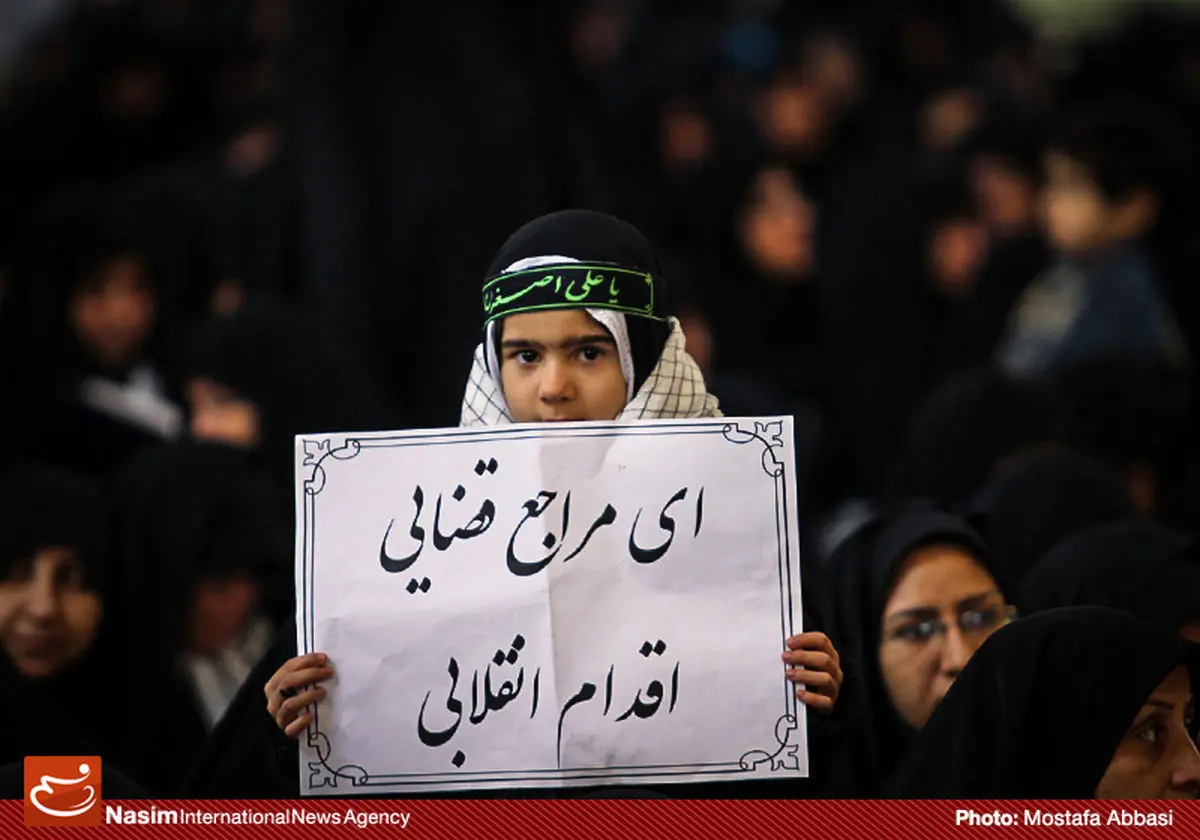 یا علی اصغر
ای مراجع قضایی
اقدام انقلابی
Nasim International News Agency
Photo: Mostafa Abbasi